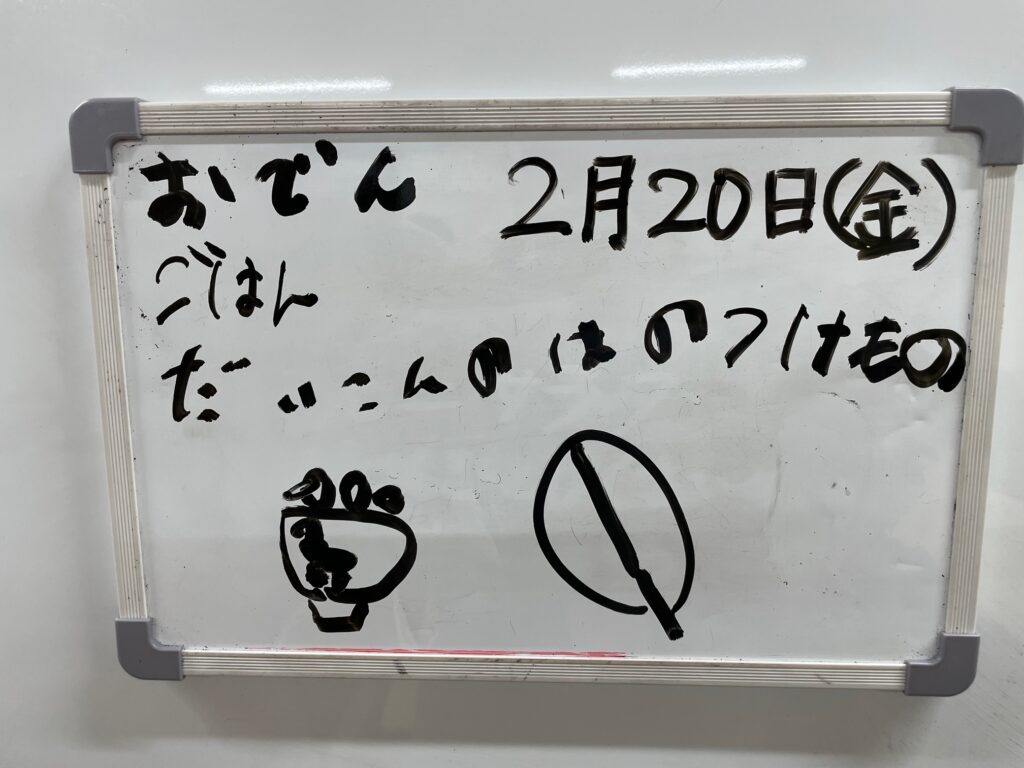 おでん 2月20日(金)
ごはん
だいこんのはのつけもの